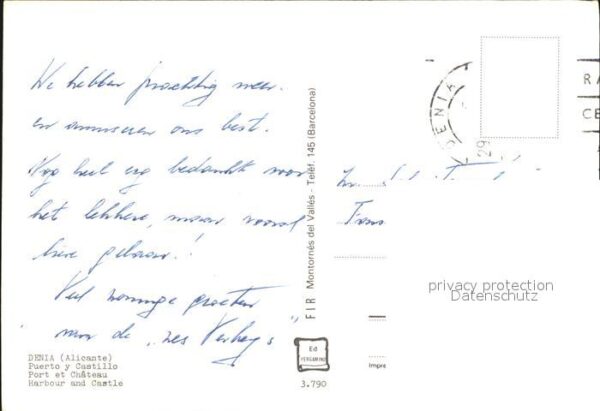 We hebben prachtig weer.
en amuseren ons best.
Nog heel erg bedankt voor
het lekkere, maar vooral
lieve gebaar!
Veel zonnige groeten
van de „zes
DENIA (Alicante)
Puerto y Castillo
Port et Château
Harbour and Castle
FIR Montornés del Vallés - Teléf. 145 (Barcelona)
Ed
PERGAMINO
3.790
DENIA
29
RA
CE
Fam
privacy protection
Datenschutz
Impre